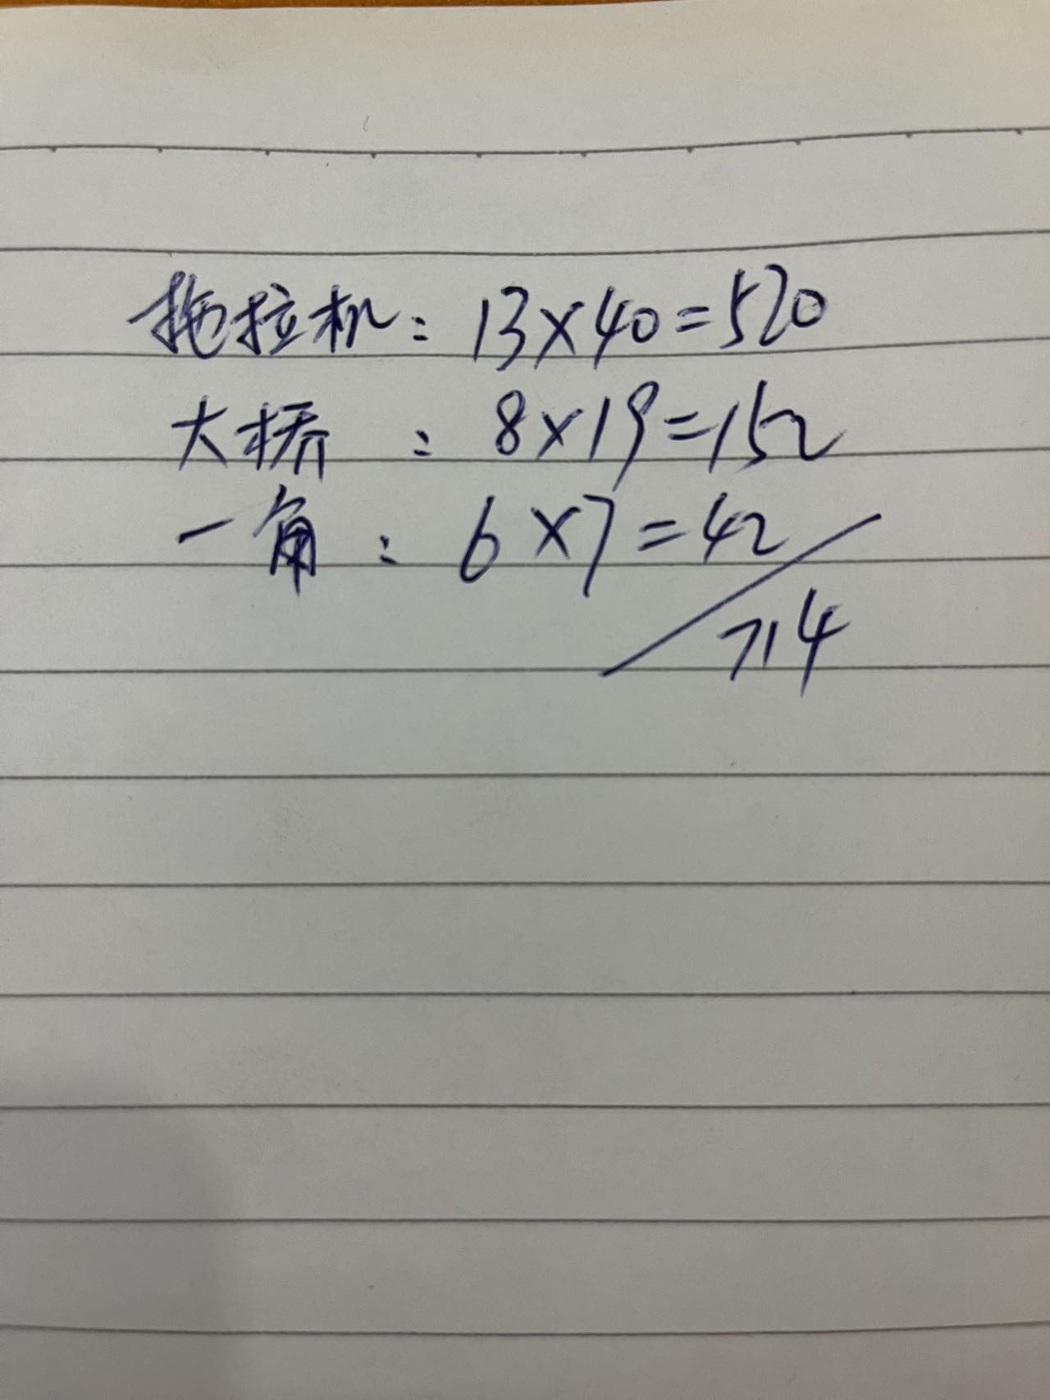 拖拉机：13×40=520
大桥：8×19=152
一角：6×7=42
714